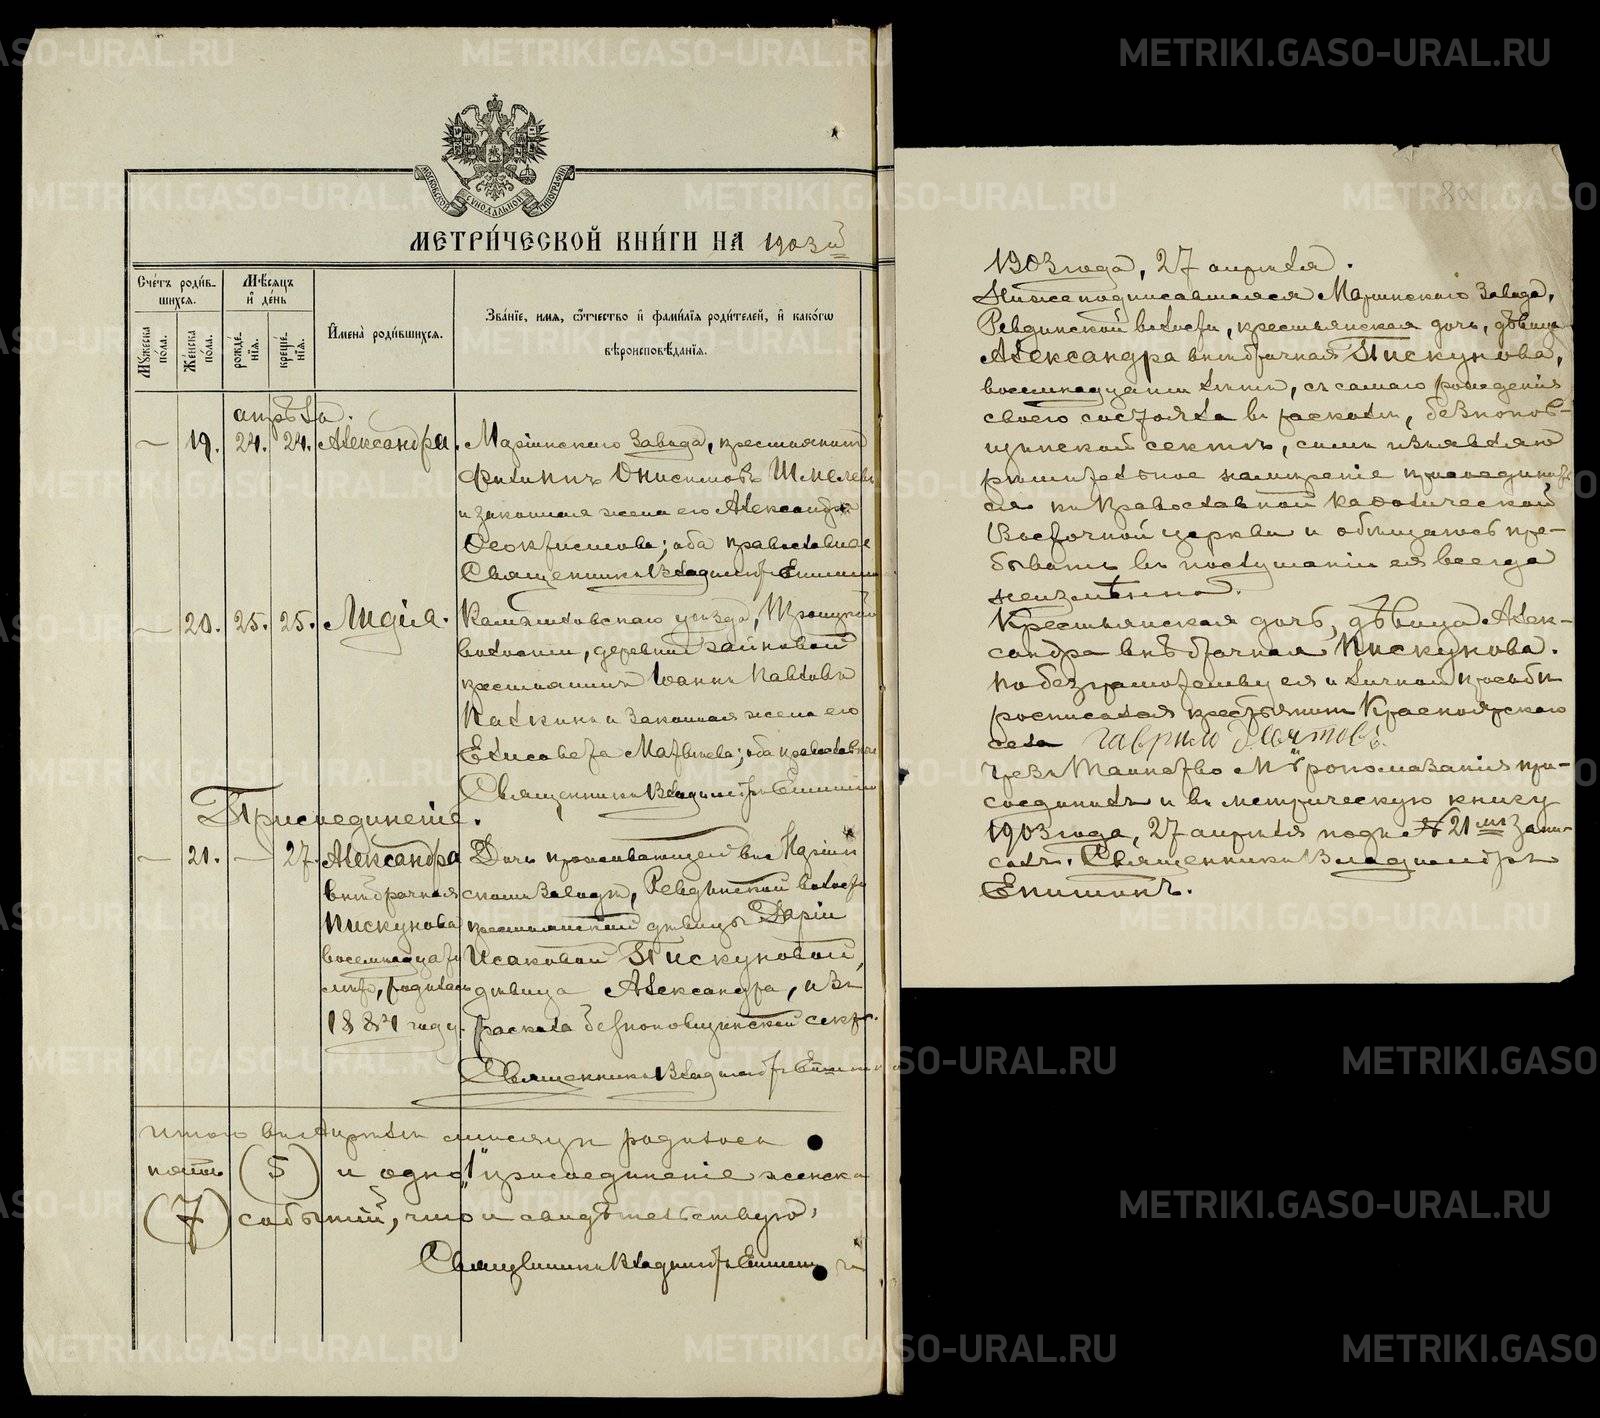 МЕТРИ́ЧЕСКОЙ КНИ́ГИ НА 1903й
Сче́тъ роди́в-
шихся.
Мѣ́сяцъ
и҆ де́нь
Му́жеска
по́ла.
Же́нска
по́ла.
рожде́-
нїѧ.
креще́-
нїѧ.
И҆мена̀ роди́вшихсѧ.
Зва́нїе, и҆мѧ, ѻ҆́тчество и҆ фами́лїѧ роди́телей, и҆ како́гѡ
вѣроисповѣ́данїѧ.
апрѣля.
— 19. 24. 24. Александра. Маріинскаго Завода, крестьянинъ
Филиппъ Онисимовъ Шмелевъ
и законная жена его Александра
Феоктистова; оба православные
Священникъ Владиміръ Епишинъ
— 20. 25. 25. Лидія. Камышловскаго уѣзда, Троицкой
волости, деревни Зайковой
крестьянинъ Іоаннъ Павловъ
Палкинъ и законная жена его
Елисавета Матвѣева; оба православные
Священникъ Владиміръ Епишинъ
Присоединеніе.
— 21. — 27. Александра
внѣбрачная
Пискунова
восемнадцати
лѣтъ, родилась
1884 году.
Дочь проживающей въ Маріин
скомъ Заводѣ, Ревдинской волости
крестьянской дѣвицы Даріи
Исаковой Пискуновой,
дѣвица Александра, изъ
раскола безпоповщинской секты.
Священникъ Владиміръ Епишинъ
Итого въ Апрѣлѣ мѣсяцѣ родилось
(5) и одно "1" присоединеніе женска
(7) событій, что и свидѣтельствую:
Священникъ Владиміръ Епишинъ
1903 года, 27 апрѣля.
Нижеподписавшаяся Маріинскаго Завода,
Ревдинской волости, крестьянская дочь, дѣвица
Александра внѣбрачная Пискунова,
восемнадцати лѣтъ, съ самаго рожденія
своего состояла въ расколѣ, безпопов-
щинской сектѣ, симъ изъявляю
рѣшительное намѣреніе присоединить
ся къ Православной Каѳолической
Восточной церкви и обѣщаюсь пре-
бывать въ послушаніи ея всегда
неизмѣнно.
Крестьянская дочь, дѣвица Алек-
сандра внѣбрачная Пискунова.
По безграмотству ея и личной просьбѣ
росписался крестьянинъ Красноярскаго
села Гаврило
Чрезъ Таинство Мѵропомазанія при-
соединилъ и въ метрическую книгу
1903 года, 27 апрѣля подъ № 21мъ запи-
салъ. Священникъ Владиміръ
Епишинъ.
METRIKI.GASO-URAL.RU